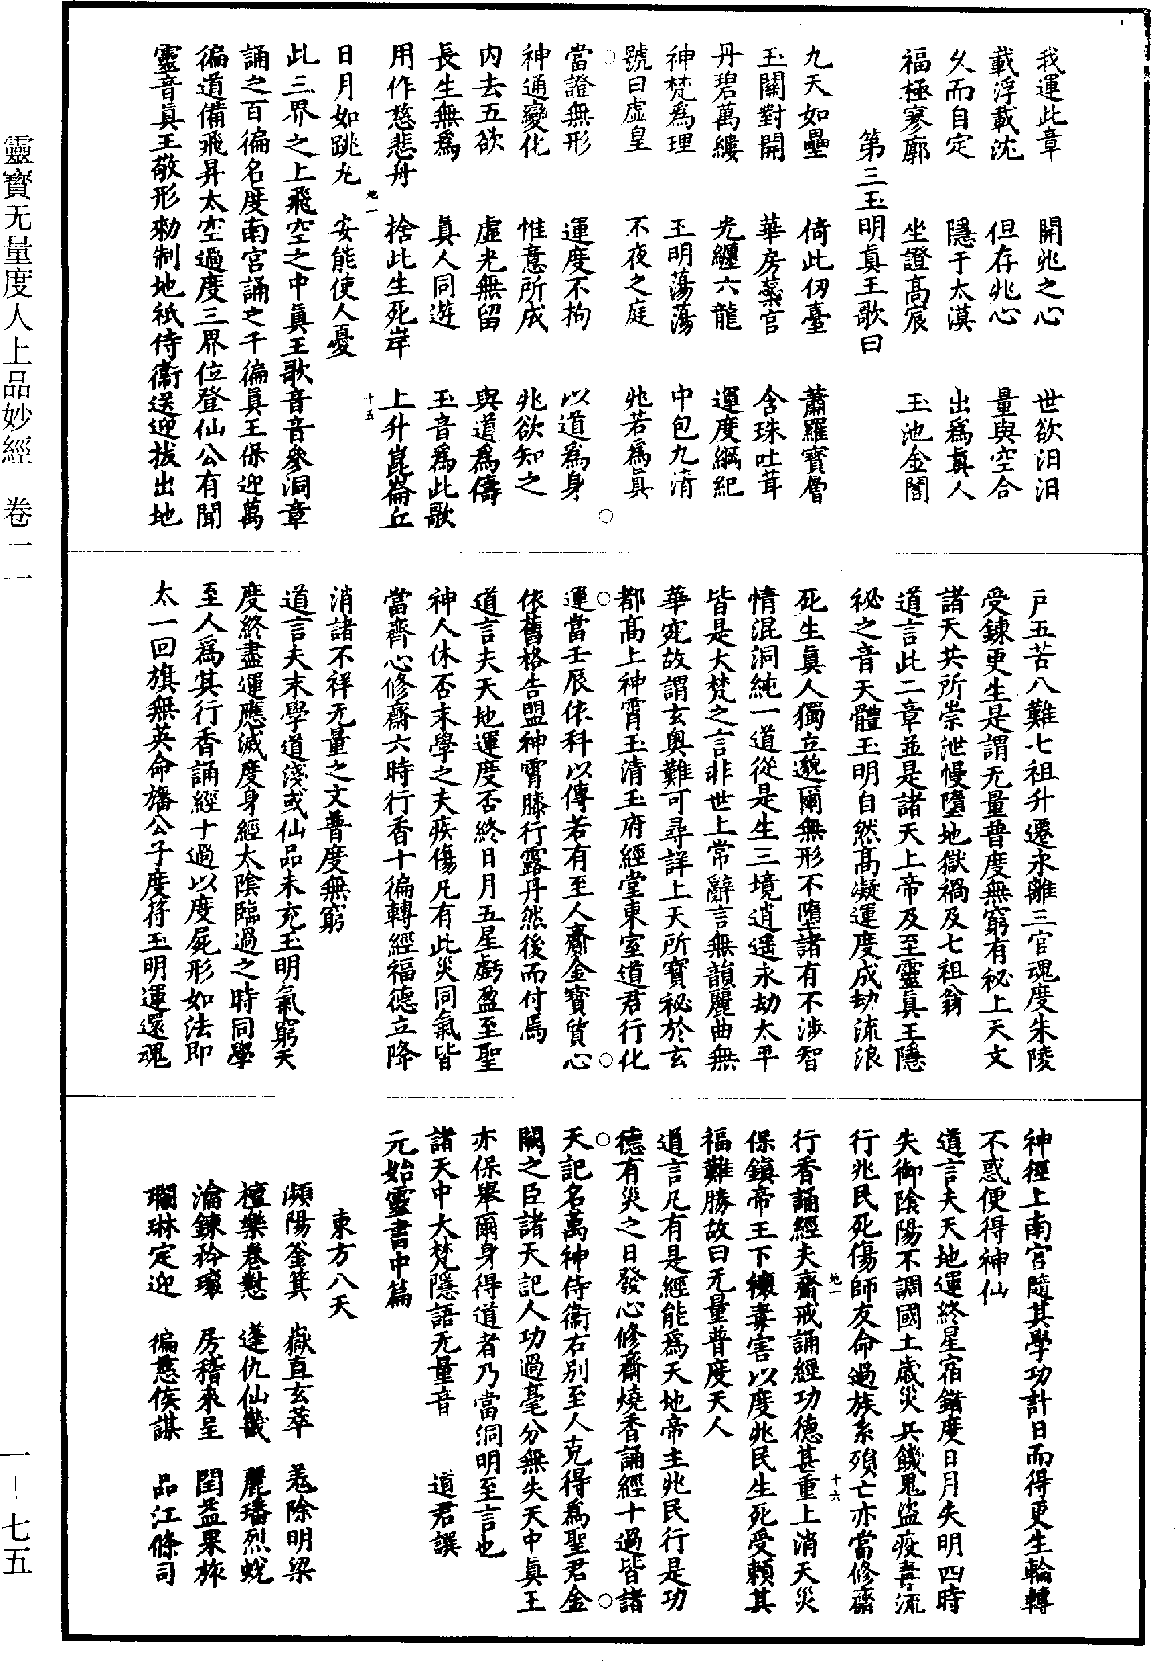 我運此章　開兆之心　世欲汨汨
載浮載沈　但存兆心　量與空合
久而自定　隱于太漠　出爲眞人
福極寥廓　坐證高宸　玉池金閣
第三玉明眞王歌曰
九天如壘　倚此仞臺　蕭羅寶曾
玉關對開　華房蘂宫　含珠吐茸
丹碧萬縷　光纏六龍　運度綱紀
神梵爲理　玉明蕩蕩　中包九清
號曰虛皇　不夜之庭　兆若爲眞
當證無形　運度不拘　以道爲身
神通變化　惟意所成　兆欲知之
内去五欲　虛光無留　與道爲儔
長生無爲　眞人同遊　玉音爲此歌
用作慈悲舟　捨此生死岸　上升崑崙丘
地一　十五
日月如跳尤　安能使人憂
此三界之上飛空之中眞王歌音音參洞章
誦之百徧名度南宮誦之千徧眞王保迎萬
徧道備飛昇太空過度三界位登仙公有聞
靈音眞王敬形勑制地祇侍衞送迎拔出地
戸五苦八難七祖升遷永離三官魂度朱陵
受鍊更生是謂无量普度無窮有秘上天文
諸天共所崇泄慢墮地獄禍及七祖翁
道言此二章並是諸天上帝及至靈眞王隱
秘之音天體玉明自然高凝運度成劫流浪
死生眞人獨立邈爾無形不墮諸有不渉智
情混洞純一道從是生三境逍遥永劫太平
皆是大梵之言非世上常辭言無韻麗曲無
華宛故謂玄奥難可尋詳上天所寶秘於玄
都髙上神霄玉清玉府經堂東室道君行化
運當壬辰依科以傳若有至人齎金寶質心
依舊格告盟神霄膝行露丹然後而付焉
道言夫天地運度否終日月五星虧盈至聖
神人休否末學之夫疾傷凡有此災同氣皆
當齊心修齋六時行香十徧轉經福德立降
消諸不祥无量之文普度無窮
道言夫末學道淺或仙品未充玉明氣窮天
度終盡運應滅度身經太陰臨過之時同學
至人爲其行香誦經十過以度屍形如法即
太一回旗無英命旛公子度符玉明運還魂
神徑上南宫隨其學功計日而得更生輪轉
不惑便得神仙
道言夫天地運終星宿錯度日月失明四時
失御陰陽不調國土歳災兵饑鬼盜疫毒流
行兆民死傷師友命過族系殞亡亦當修齋
地一　十六
行香誦經夫齋戒誦經功德甚重上消天災
保鎮帝王下禳毒害以度兆民生死受賴其
福難勝故曰无量普度天人
道言凡有是經能爲天地帝主兆民行是功
德有災之日發心修齋燒香誦經十過皆諸
天記名萬神侍衞右别至人克得爲聖君金
闕之臣諸天記人功過毫分無失天中眞王
亦保舉爾身得道者乃當洞明至言也
諸天中大梵隱語无量音　道君譔
元始靈書中篇
東方八天
瀕陽釜箕　嶽直玄萃　羗除明梁
檀樂卷懟　蓬仇仙㘍　麗璠烈蛻
瀹鍊矜瓌　房稽來呈　閏益果旅
瓓琳定迎　徧慈俟謀　品江條司
靈寶无量度人上品妙經　卷一一
一－七五